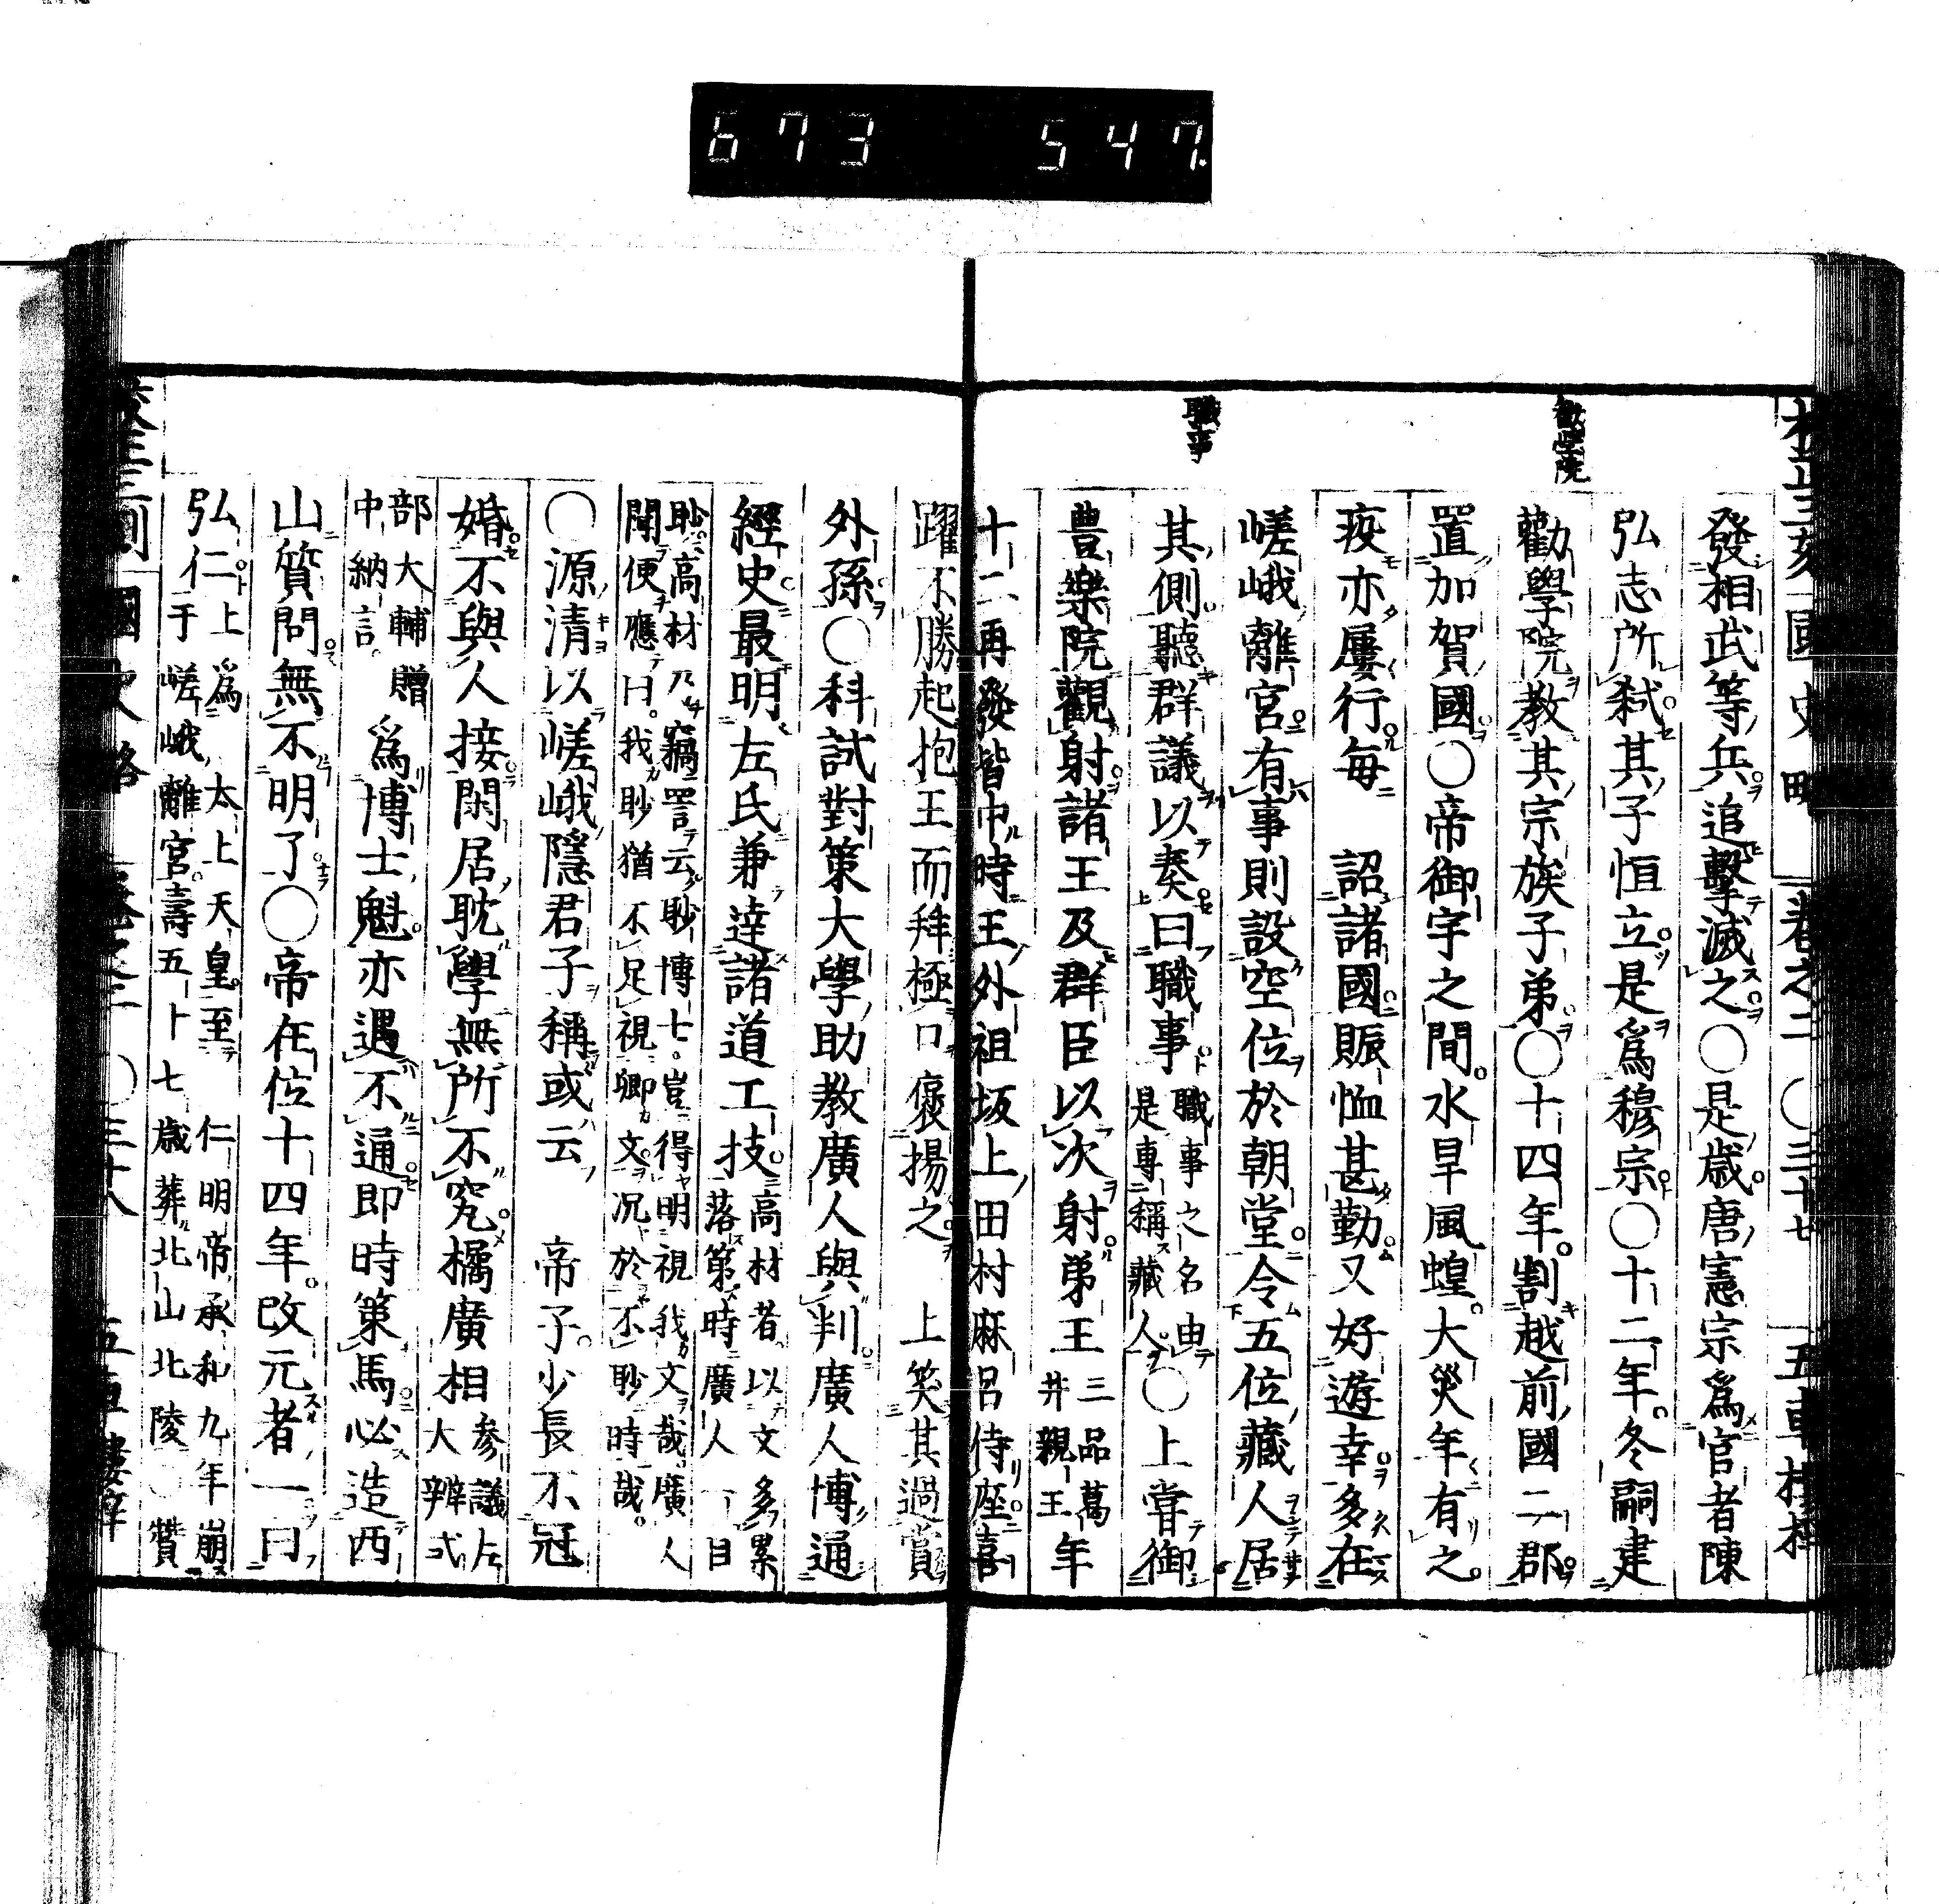 673 547
國史略 卷之二 〇三十七 五車樓梓
勸學院
職事
發相武等兵追擊滅之〇是歳唐憲宗爲官者陳
弘志所弑其子恒立是爲穆宗〇十二年冬嗣建
勸學院教其宗族子弟〇十四年割越前國二郡
置加賀國〇帝御宇之間水旱風蝗大災年有之
疫亦屢行毎 詔諸國賑恤甚勤又好遊幸多在
嵯峨離宮有事則設空位於朝堂令五位藏人居
其側聽群議以奏曰職事職事之名由是專稱藏人〇上嘗御
豊樂院觀射諸王及群臣以次射弟王三品葛井親王年
十二再發皆中時王外祖坂上田村麻呂侍座喜
躍不勝起抱王而拜極口襃揚之 上笑其過賞
外孫〇科試對策大學助教廣人與判廣人博通
經史最明左氏兼達諸道工技高材者以文多累落第時廣人一目
眇高材乃竊詈云眇博士豈得明視我文哉廣人聞便應曰我眇猶不足視卿文況於不眇時哉
〇源清以嵯峨隱君子稱或云 帝子少長不冠
婚不與人接閑居耽學無所不究橘廣相參議左大辨式
部大輔贈中納言爲博士魁亦遇不通即時策馬必造西
山質問無不明了〇帝在位十四年改元者一曰
弘仁上爲 太上天皇至 仁明帝承和九年崩于嵯峨離宮壽五十七歳葬北山北陵〇贊
國史略 卷之二 〇三十八 五車樓梓